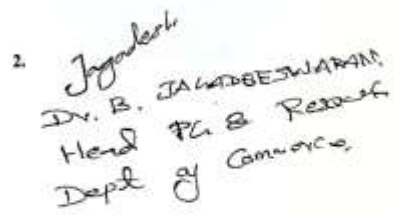 2. Jagadesh
Dr. B. JAGADEESWARAN
Head PG & Research
Dept of Commerce,